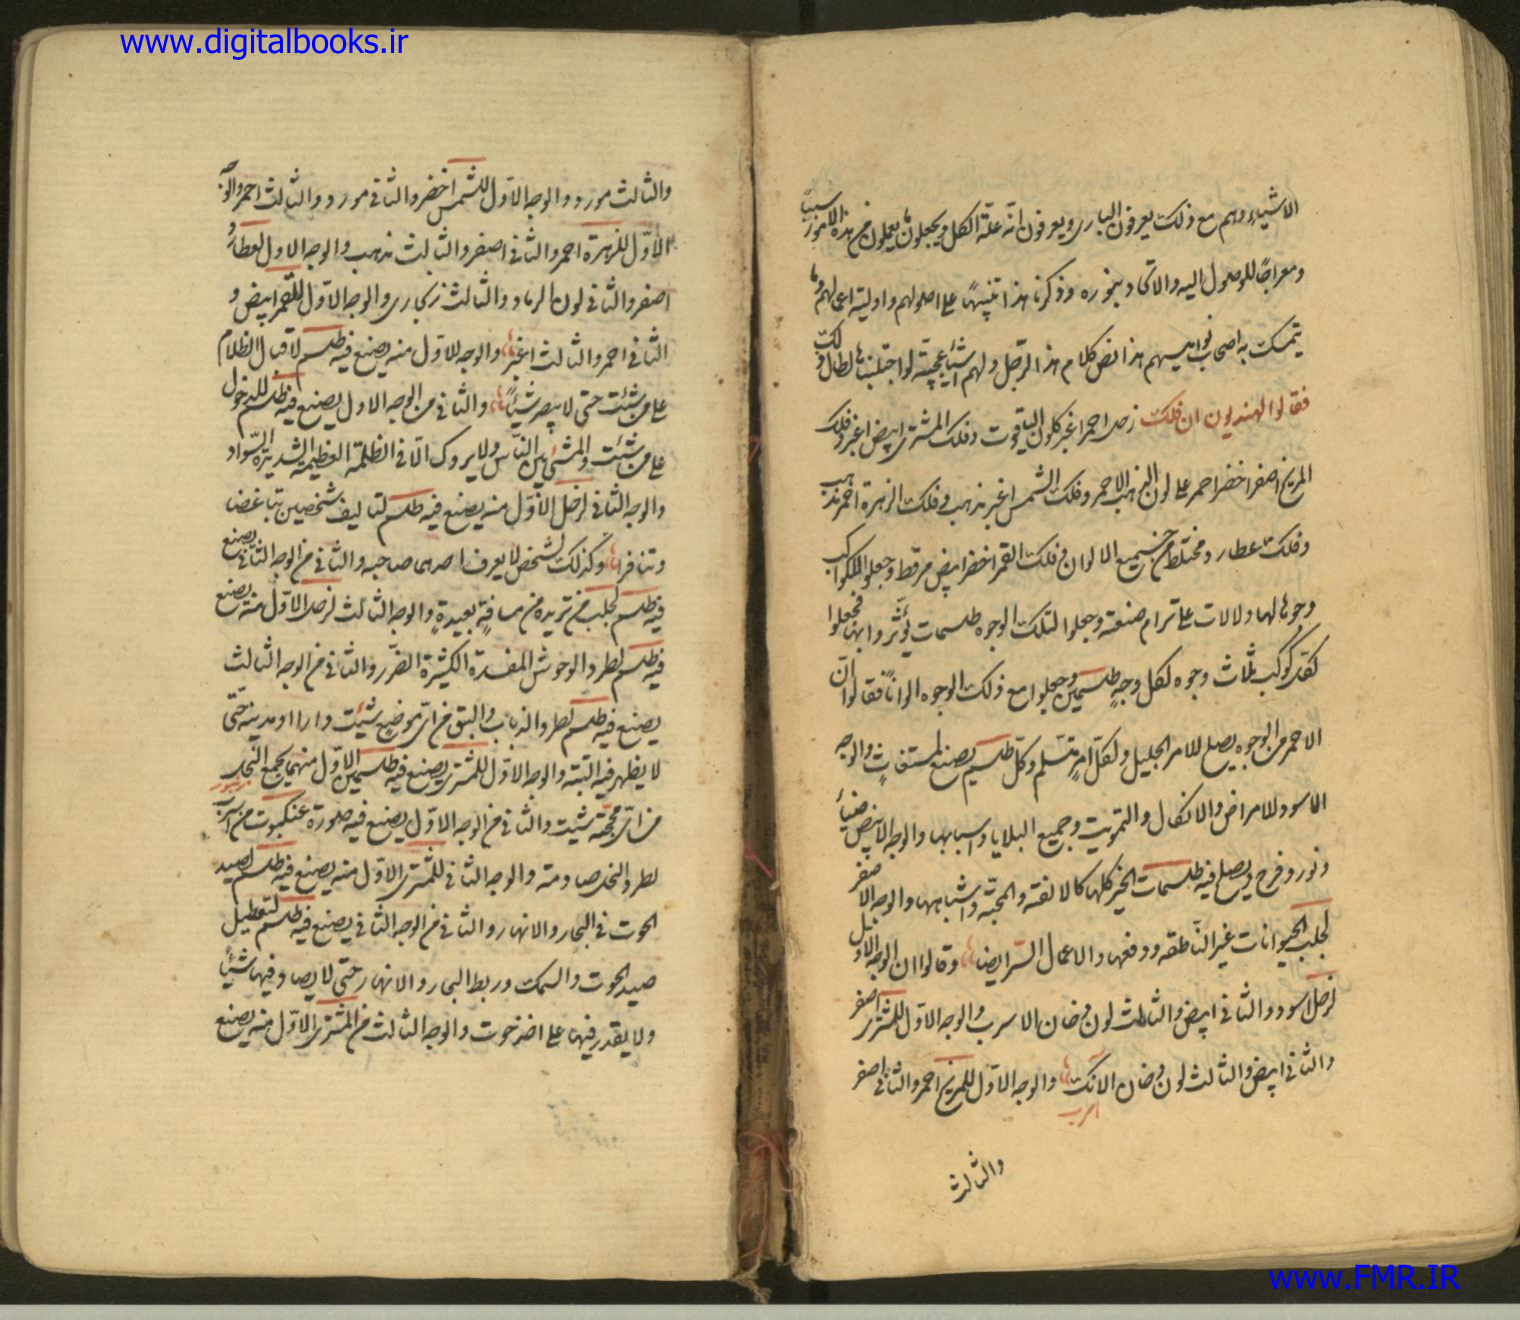 www.digitalbooks.ir
الاشياء وهم مع ذلك يعرفون البارى ويعرفون انّه علّة الكل ويجعلون ما يعملون من هذه الامور سبباً
ومعراجًا للوصول اليه والاتحاد بنوره وذكرنا هذا تنبيهًا على اصولهم واوليته اعمالهم وما
يتمسك به اصحاب نواميسهم هذا نص كلام هذا الرّجل ولهم اشياء عجيبة لو اجتلبناها لطال ذلك
فقالوا الهنديون ان فلك زحل احمر اغبر كلون الياقوت وفلك المشترى ابيض اغبر وفلك
المريخ اصفر اخضر احمر على لون الذهب الاحمر وفلك الشمس اغبر بذهب وفلك الزهرة احمر بذهب
وفلك عطارد مختلط من جميع الالوان وفلك القمر اخضر ابيض مرقط وجعلوا للكواكب
وجوها لها دلالات على ترام صنعته وجعلوا لتلك الوجوه طلسمات يؤثّر وا بها فجعلوا
لكل كوكب ثلاث وجوه لكل وجهٍ طلسمين وجعلوا مع ذلك الوجوه الوانًا فقالوا انّ
الاحمر من الوجوه يصلح للامر الجليل ولكل امرٍ متسلم وكلّ طلسم يصنع لمستغاثٍ والوجه
الاسود للامراض والانكال والتمويت وجميع البلايا واسبابها والوجه الابيض ضياءً
ونور وفرح ويصلح فيه طلسمات الخير كلها كالالفة والمحبّة واشباهها والوجه الاصفر
لجلب الحيوانات غير النّاطقه ودفعها والاعمال السّر ايضا وقالوا ان الوجه الاول
لزحل اسود والثانى ابيض والثالث لون دخان الاسرب والوجه الاوّل للمشترى اصفر
والثانى ابيض والثالث لون دخان الانك والوجه الاوّل للمريخ احمر والثانى اصفر
اسرب
والثالث
والثالث مورد والوجه الاوّل للشمس اخضر والثانى مورد والثالث احمر والوجه
الاوّل للزهرة احمر والثانى اصفر والثالث مذهب والوجه الاول لعطارد
اصفر والثانى لون الرماد والثالث زنجارى والوجه الاوّل للقمر ابيض و
الثانى احمر والثالث اغبر والوجه الاوّل منه يصنع فيه طلسم لاقبال الظلام
على من شئت حتى لا يبصر شيئاً والثانى من الوجه الاول يصنع فيه طلسم للدخول
على من شئت والمشى بين النّاس ولا يروك الّا فى الظلمة العظيمة الشديدة السّواد
والوجه الثانى لزحل الاوّل منه يصنع فيه طلسم لتاليف شخصين تباغضا
وتنافرا وكذلك لشخص لا يعرف احدهما صاحبه والثانى من الوجه الثانى يصنع
فيه طلسم لجلب من تريده من مسافةٍ بعيدةٍ والوجه الثالث لزحل الاوّل منه يصنع
فيه طلسم لطرد الوحوش المفسدة الكثيرة الضّرر والثانى من الوجه الثالث
يصنع فيه طلسم لطرد الذباب والبق من اى موضعٍ شئت دارا او مدينة حتّى
لا يظهر فيه البتة والوجه الاوّل للمشترى يصنع فيه طلسمين الاوّل منهما يجمع النحل
من اى جهة شئت والثانى من الوجه الاوّل يصنع فيه صورة عنكبوت من اسرب
لطرد النحل صادمته والوجه الثانى للمشترى الاوّل منه يصنع فيه طلسم لصيد
الحوت فى البحار والانهار والثانى من الوجه الثانى يصنع فيه طلسم لتعطيل
صيد الحوت والسمك وربط البحار والانهار حتى لا يصاد فيها شيئاً
ولا يقدر فيها على اخذ حوت والوجه الثالث من المشترى الاوّل منه يصنع
www.FMR.IR